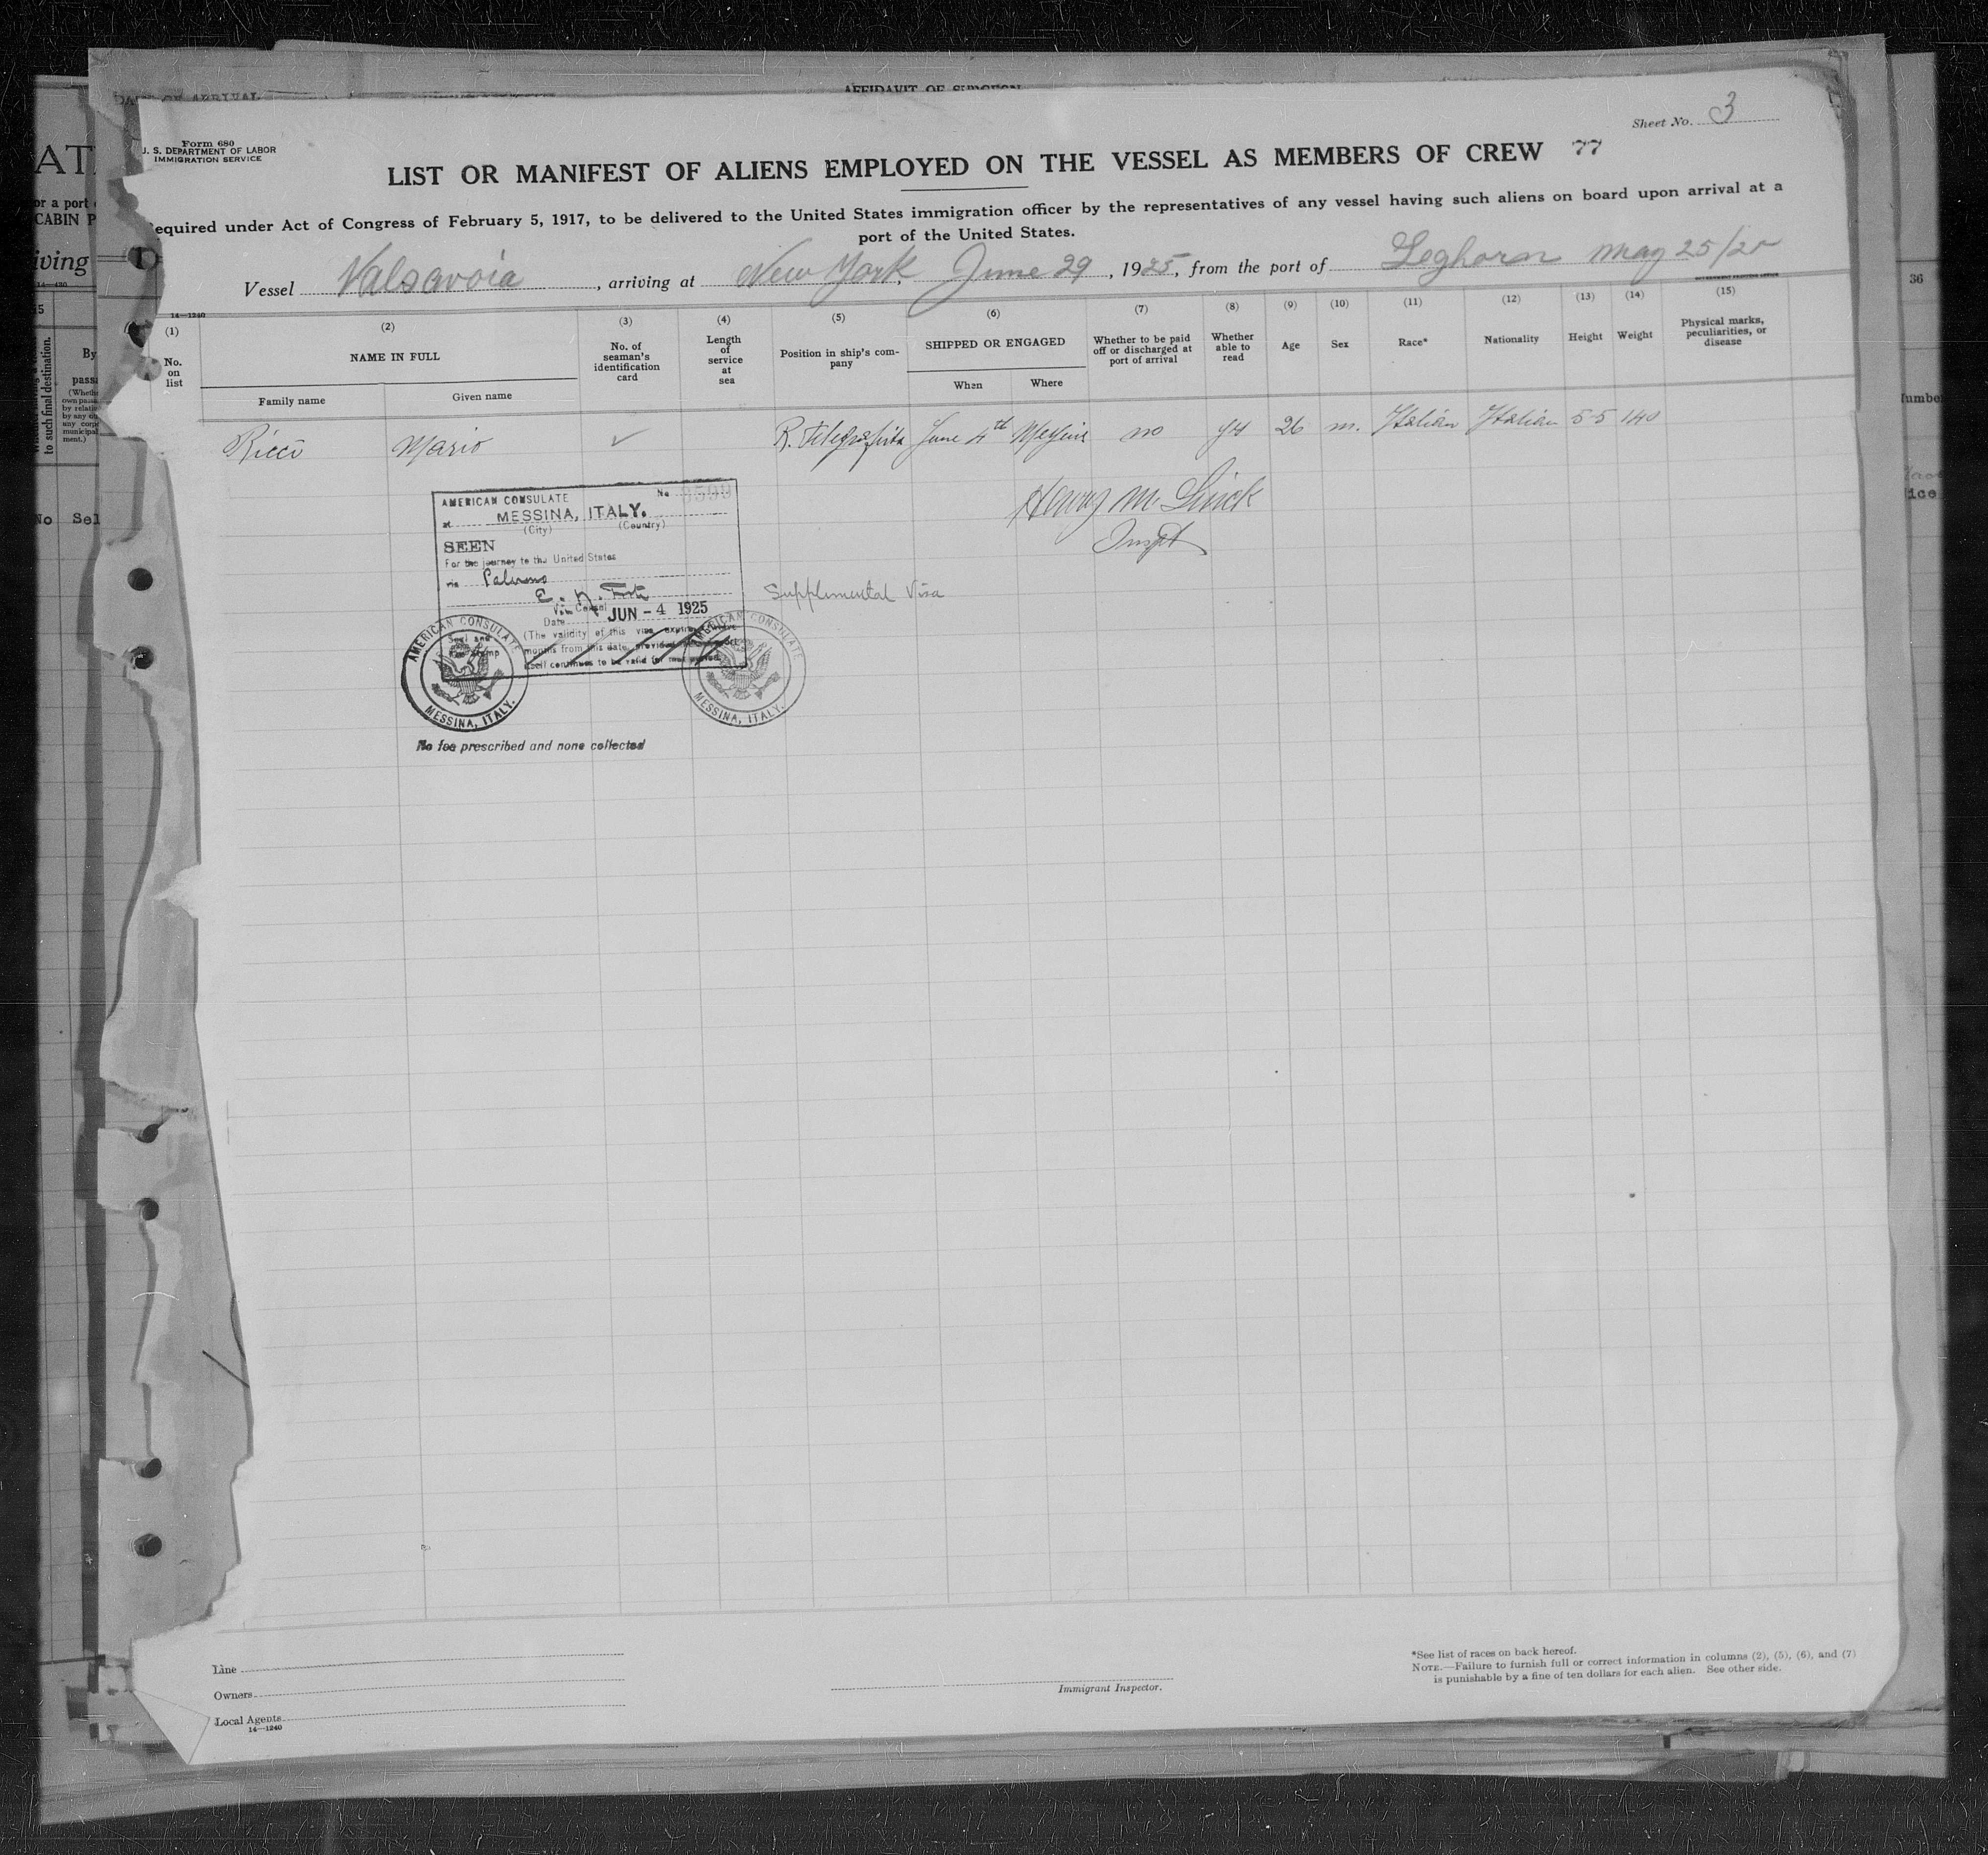 DATE OF ARRIVAL
AFFIDAVIT OF SURGEON
Sheet No. 3
Form 680
U. S. DEPARTMENT OF LABOR
IMMIGRATION SERVICE
LIST OR MANIFEST OF ALIENS EMPLOYED ON THE VESSEL AS MEMBERS OF CREW 77
equired under Act of Congress of February 5, 1917, to be delivered to the United States immigration officer by the representatives of any vessel having such aliens on board upon arrival at a
port of the United States.
Vessel Valsavoia, arriving at New York, June 29, 1925, from the port of Leghorn May 25/25
14—1240
(1) (2) (3) (4) (5) (6) (7) (8) (9) (10) (11) (12) (13) (14) (15)
No. on list
NAME IN FULL
Family name
Given name
No. of seaman's identification card
Length of service at sea
Position in ship's company
SHIPPED OR ENGAGED
When
Where
Whether to be paid off or discharged at port of arrival
Whether able to read
Age
Sex
Race*
Nationality
Height
Weight
Physical marks, peculiarities, or disease
Ricci Mario ✓ R. Telegrafista June 4th Messina no yes 26 m. Italian Italian 5-5 140
Henry M. Linick
Inspt
AMERICAN CONSULATE No
at MESSINA, ITALY.
(City) (Country)
SEEN
For the journey to the United States
via Palermo
Vice Consul
Date JUN - 4 1925
(The validity of this visa expires
months from this date, provided
shall continues to be valid for that period.
Seal and
Fee Stamp
AMERICAN CONSULATE
MESSINA, ITALY.
AMERICAN CONSULATE
MESSINA, ITALY.
Supplemental Visa
No fee prescribed and none collected
Line
Owners
Local Agents
14—1240
Immigrant Inspector.
*See list of races on back hereof.
NOTE.—Failure to furnish full or correct information in columns (2), (5), (6), and (7)
is punishable by a fine of ten dollars for each alien. See other side.